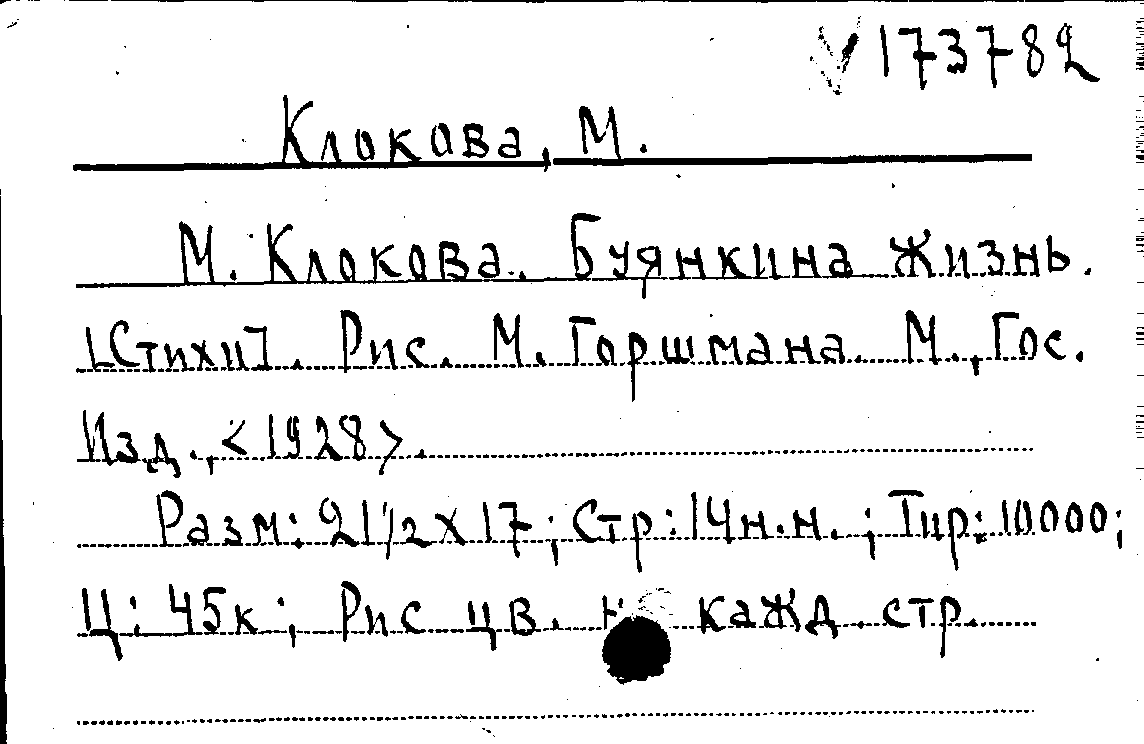 V 173782
Клокова, М.
М. Клокова. Буянкина жизнь.
[Стихи]. Рис. М. Горшмана. М., Гос.
Изд., <1928>.
Разм: 21 1/2 х 17; Стр: 14 н.н.; Тир: 10000;
Ц: 45к; Рис цв. кажд. стр.